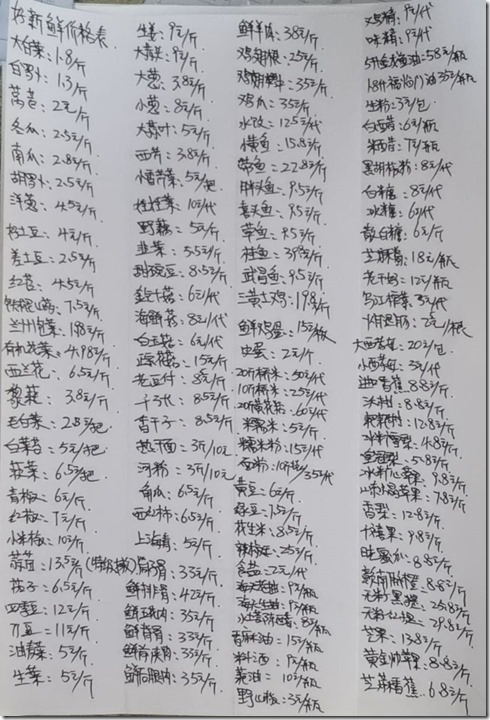 好新鲜价格表
大白菜:1.8/斤
白萝卜:1.3/斤
莴苣:2元/斤
冬瓜:2.5元/斤
南瓜:2.8元/斤
胡萝卜:2.5元/斤
洋葱:4.5元/斤
粉土豆:4元/斤
黄土豆:2.5元/斤
红苕:4.5元/斤
铁棍山药:7.5元/斤
兰州百合:198/斤
有机花菜:4.98/斤
西兰花:6.5元/斤
藜蒿:3.8元/斤
毛白菜:2.8元/把
白菜苔:5元/把
菠菜:6.5元/把
青椒:6元/斤
红椒:7元/斤
小米椒:10元/斤
蒜苗:13.5元/斤
茄子:6.5元/斤
四季豆:12元/斤
刀豆:11元/斤
油麦菜:5元/斤
生菜:5元/斤
生姜:9元/斤
大蒜:9元/斤
大葱:3.8元/斤
小葱:8元/斤
大蒜叶:5元/斤
西芹:3.8元/斤
小香菜:5元/把
娃娃菜:10元/代
野藕:5元/斤
韭菜:5.5元/斤
甜豌豆:8.5元/斤
金针菇:6元/代
海鲜菇:8元/代
白玉菇:6元/代
老豆付:8元/斤
千张:8.5元/斤
香干子:8.5元/斤
热干面:3斤/10元
河粉:3斤/10元
角瓜:6.5元/斤
西红柿:6.5元/斤
上海青:5元/斤
(特价猪)筒子骨:33元/斤
鲜排骨:42元/斤
鲜五花肉:35元/斤
鲜脊骨:33元/斤
鲜前夹肉:33元/斤
鲜后腿肉:35元/斤
鲜羊肉:38元/斤
鸡翅根:25元/斤
鸡翅中:35元/斤
鸡爪:35元/斤
水饺:12.5元/代
鲢鱼:15.8元/斤
带鱼:22.8元/斤
胖头鱼:9.5元/斤
喜头鱼:9.5元/斤
草鱼:9.5元/斤
桂鱼:39元/斤
武昌鱼:9.5元/斤
三黄土鸡:19.8/斤
鲜鸡蛋:15元/板
皮蛋:2元/个
20斤桥米:50元/代
10斤桥米:25元/代
20斤黄花粘:60元/代
糯米:5元/斤
糯米粉:15元/代
面粉:10斤装/35元/代
黄豆:6元/斤
绿豆:7.5元/斤
花生米:8.5元/斤
辣椒王:25元/斤
食盐:2元/代
海天老抽:9元/瓶
海天生抽:9元/瓶
香麻油:15元/瓶
料酒:9元/瓶
蚝油:10元/瓶
野山椒:3元/瓶
鸡精:9元/代
味精:9元/代
1.8升福临门油35元/瓶
生粉:3元/包
白醋:6元/瓶
米醋:7元/瓶
黑胡椒粉:8元/代
白糖:8元/代
冰糖:6元/代
散白糖:6元/斤
芝麻酱:18元/瓶
老干妈:12元/瓶
乌江榨菜:3元/代
火腿肠:2元/根
大西莓:20元/包
小西莓:5元/代
进口香蕉:8.8元/斤
沃柑:8.8元/斤
耙耙柑:12.8元/斤
水晶雪梨:4.8元/斤
皇冠梨:5.8元/斤
冰糖心苹果:9.8元/斤
山东红富士苹果:7.8元/斤
香梨:12.8元/斤
火龙果:9.8元/斤
哈蜜瓜:8.8元/斤
赣南脐橙:8.8元/斤
无籽黑提:25.8元/斤
无籽红提:29.8元/斤
芒果:13.8元/斤
黄金帅苹果:8.8元/斤
芝麻香蕉:6.8元/斤